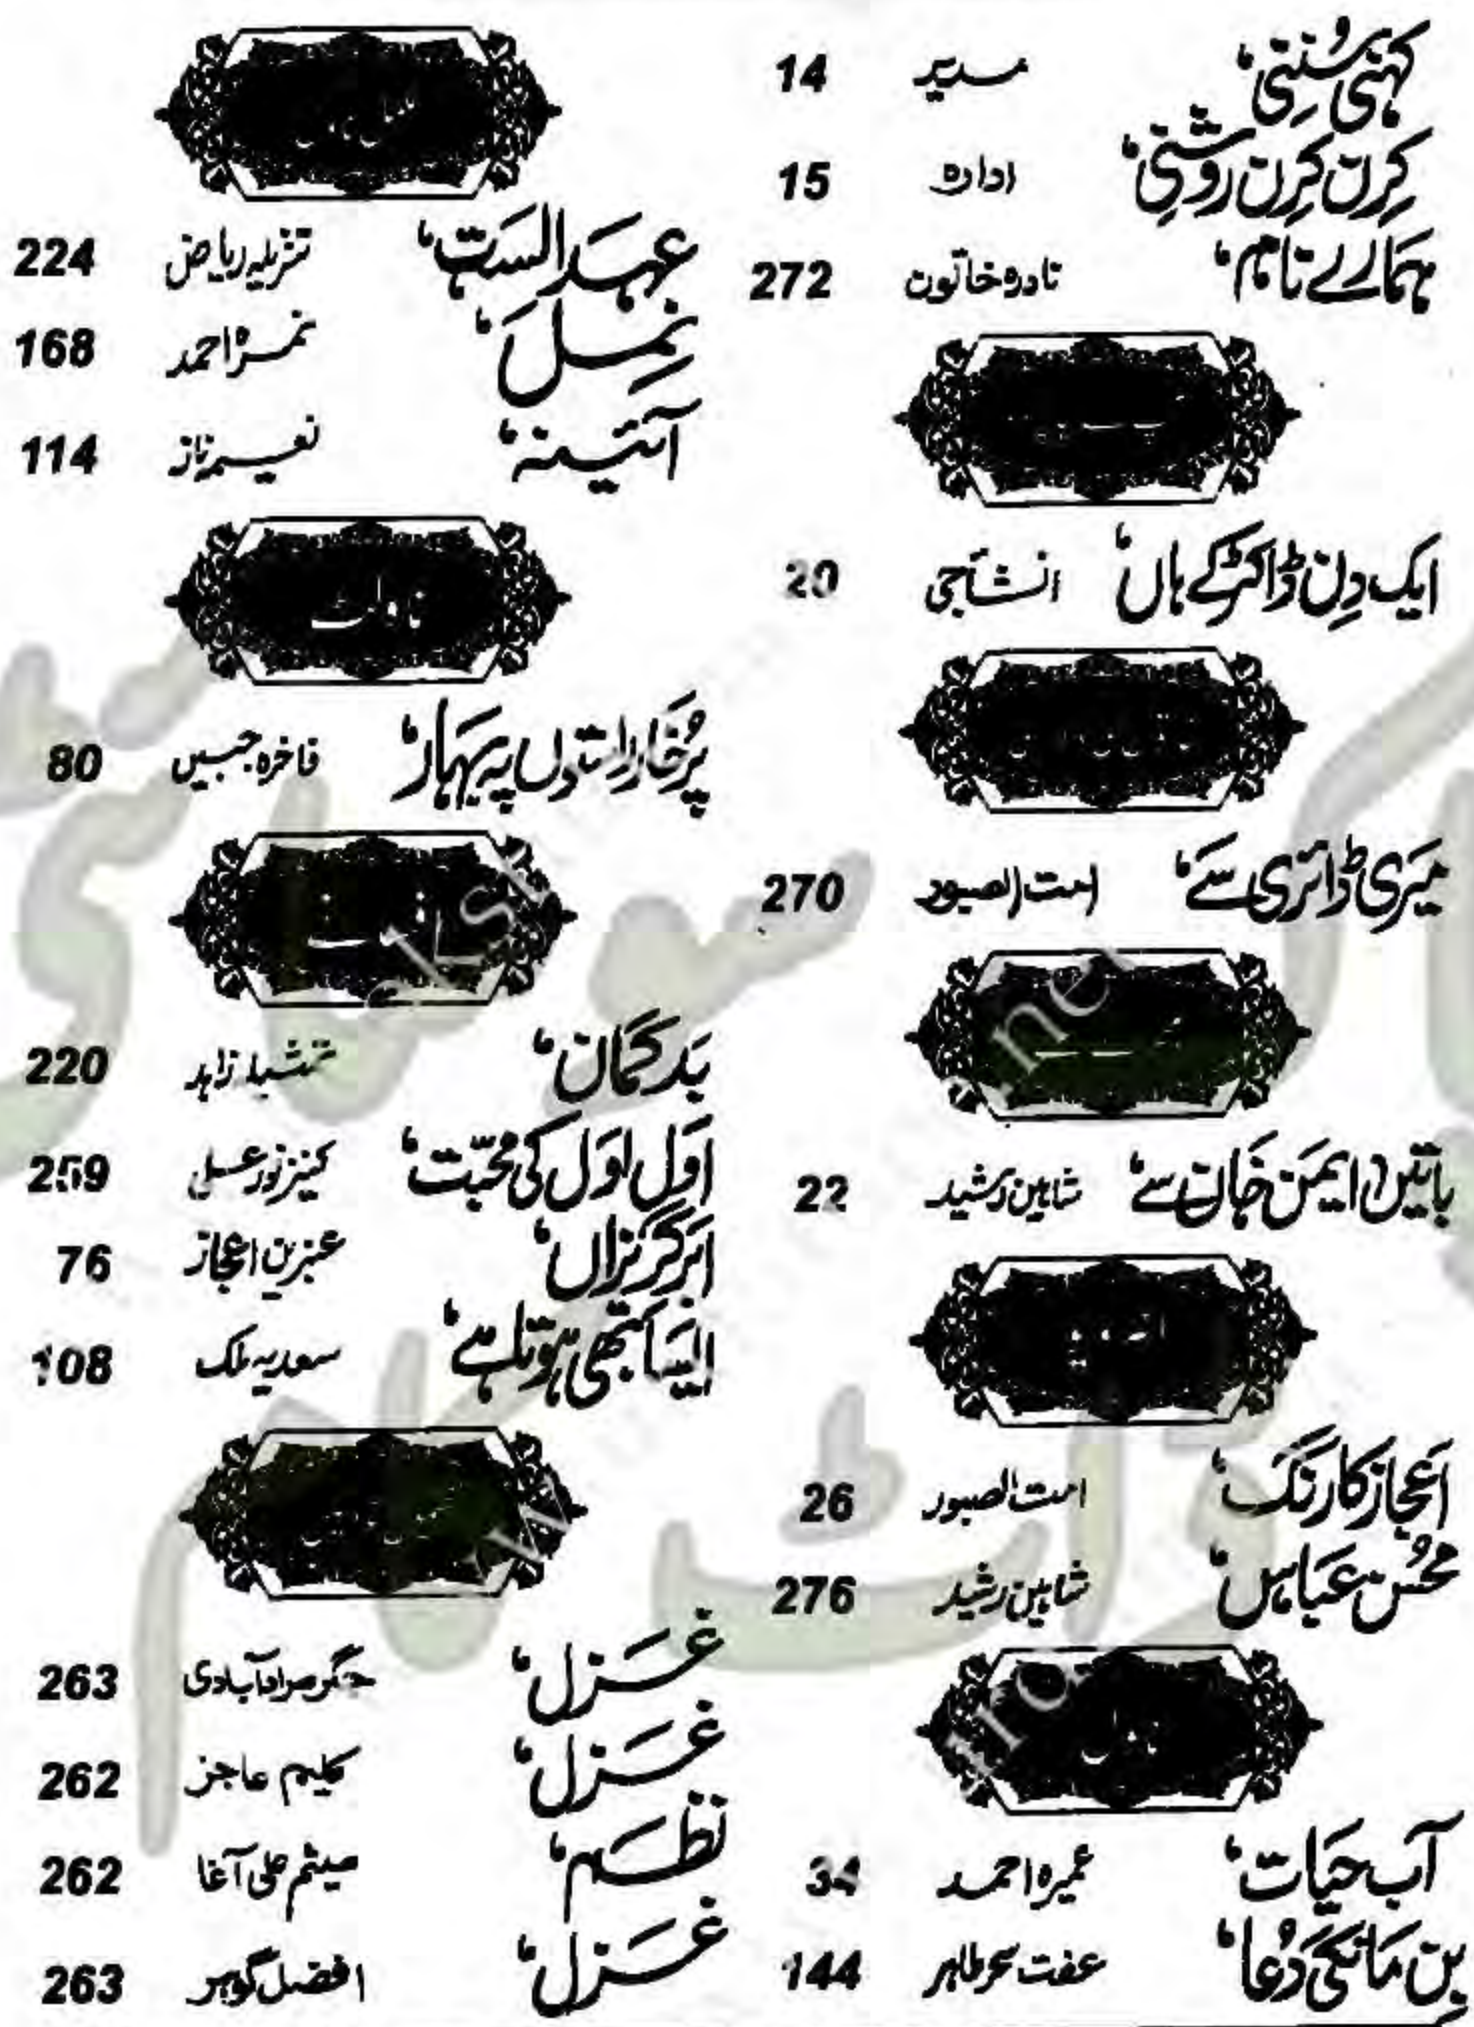 کہنی سُننی، مدیر 14
کِرن کِرن روشنی، ادارہ 15
ہمارے نام، نادرہ خاتون 272
ایک دِن ڈاکٹر کے ہاں، انشاجی 20
میری ڈائری سے، امت الصبور 270
باتیں ایمن خان سے، شاہین رشید 22
اعجاز کا رنگ، امت الصبور 26
محسن عباس، شاہین رشید 276
ناول
آبِ حیات، عمیرہ احمد 34
بِن مانگی دُعا، عفت سحر طاہر 144
مکمل ناول
عہدِ الست، تنزیلہ ریاض 224
نمل، نمرہ احمد 168
آئینہ، نعیمہ ناز 114
ناولٹ
پُرخار راستوں پہ بہار، فاخرہ جبیں 80
بدگمان، زاہد 220
اول اول کی محبّت، کنیز نور علی 259
ابر گریزاں، عنبرین اعجاز 76
ایسا بھی ہوتا ہے، سعدیہ ملک 108
غزل، جگر مراد آبادی 263
غزل، کلیم عاجز 262
نظم، میثم علی آغا 262
غزل، افضل گوہر 263